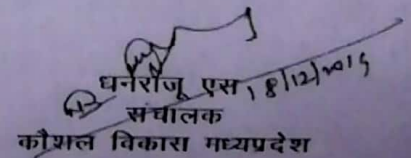 धनराजू एस 18/12/2015
संचालक
कौशल विकास मध्यप्रदेश